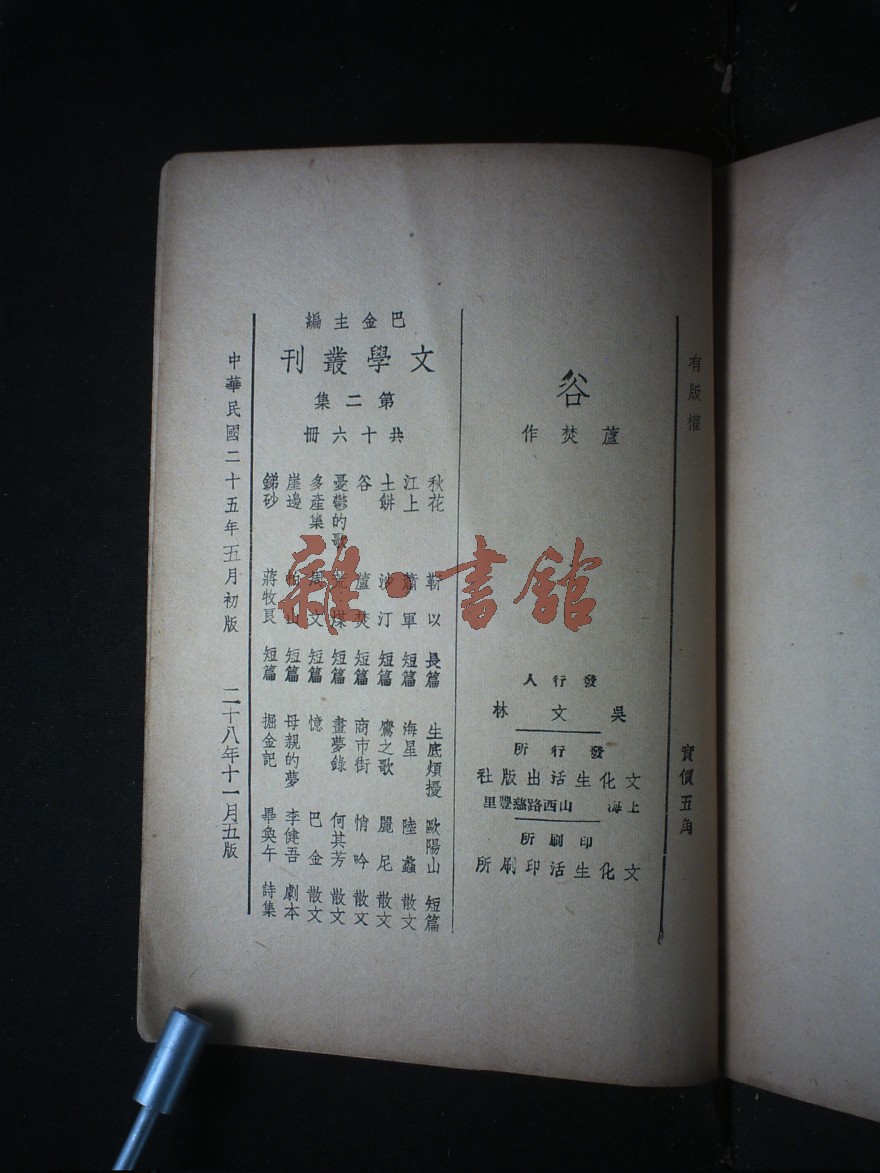 有版權
實價五角
谷
蘆焚作
發行人
吳文林
發行所
文化生活出版社
上海 山西路慈豐里
印刷所
文化生活印刷所
巴金主編
文學叢刊
第二集
共十六冊
秋花 靳以 長篇
江上 蕭軍 短篇
土餅 沙汀 短篇
谷 蘆焚 短篇
憂鬱的歌 荒煤 短篇
多產集 周文 短篇
崖邊 柏山 短篇
錦砂 蔣牧良 短篇
生底煩擾 歐陽山 短篇
海星 陸蠡 散文
鷹之歌 麗尼 散文
商市街 悄吟 散文
畫夢錄 何其芳 散文
憶 巴金 散文
母親的夢 李健吾 劇本
掘金記 畢奐午 詩集
中華民國二十五年五月初版 二十八年十一月五版
雜·書館